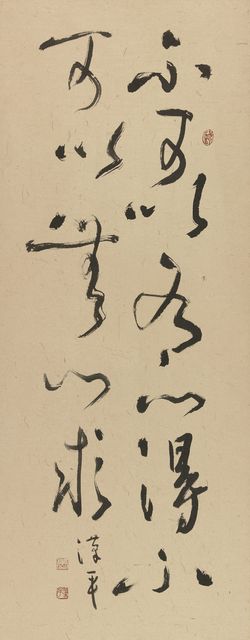 不可以有心得不
可以無心求
漢平